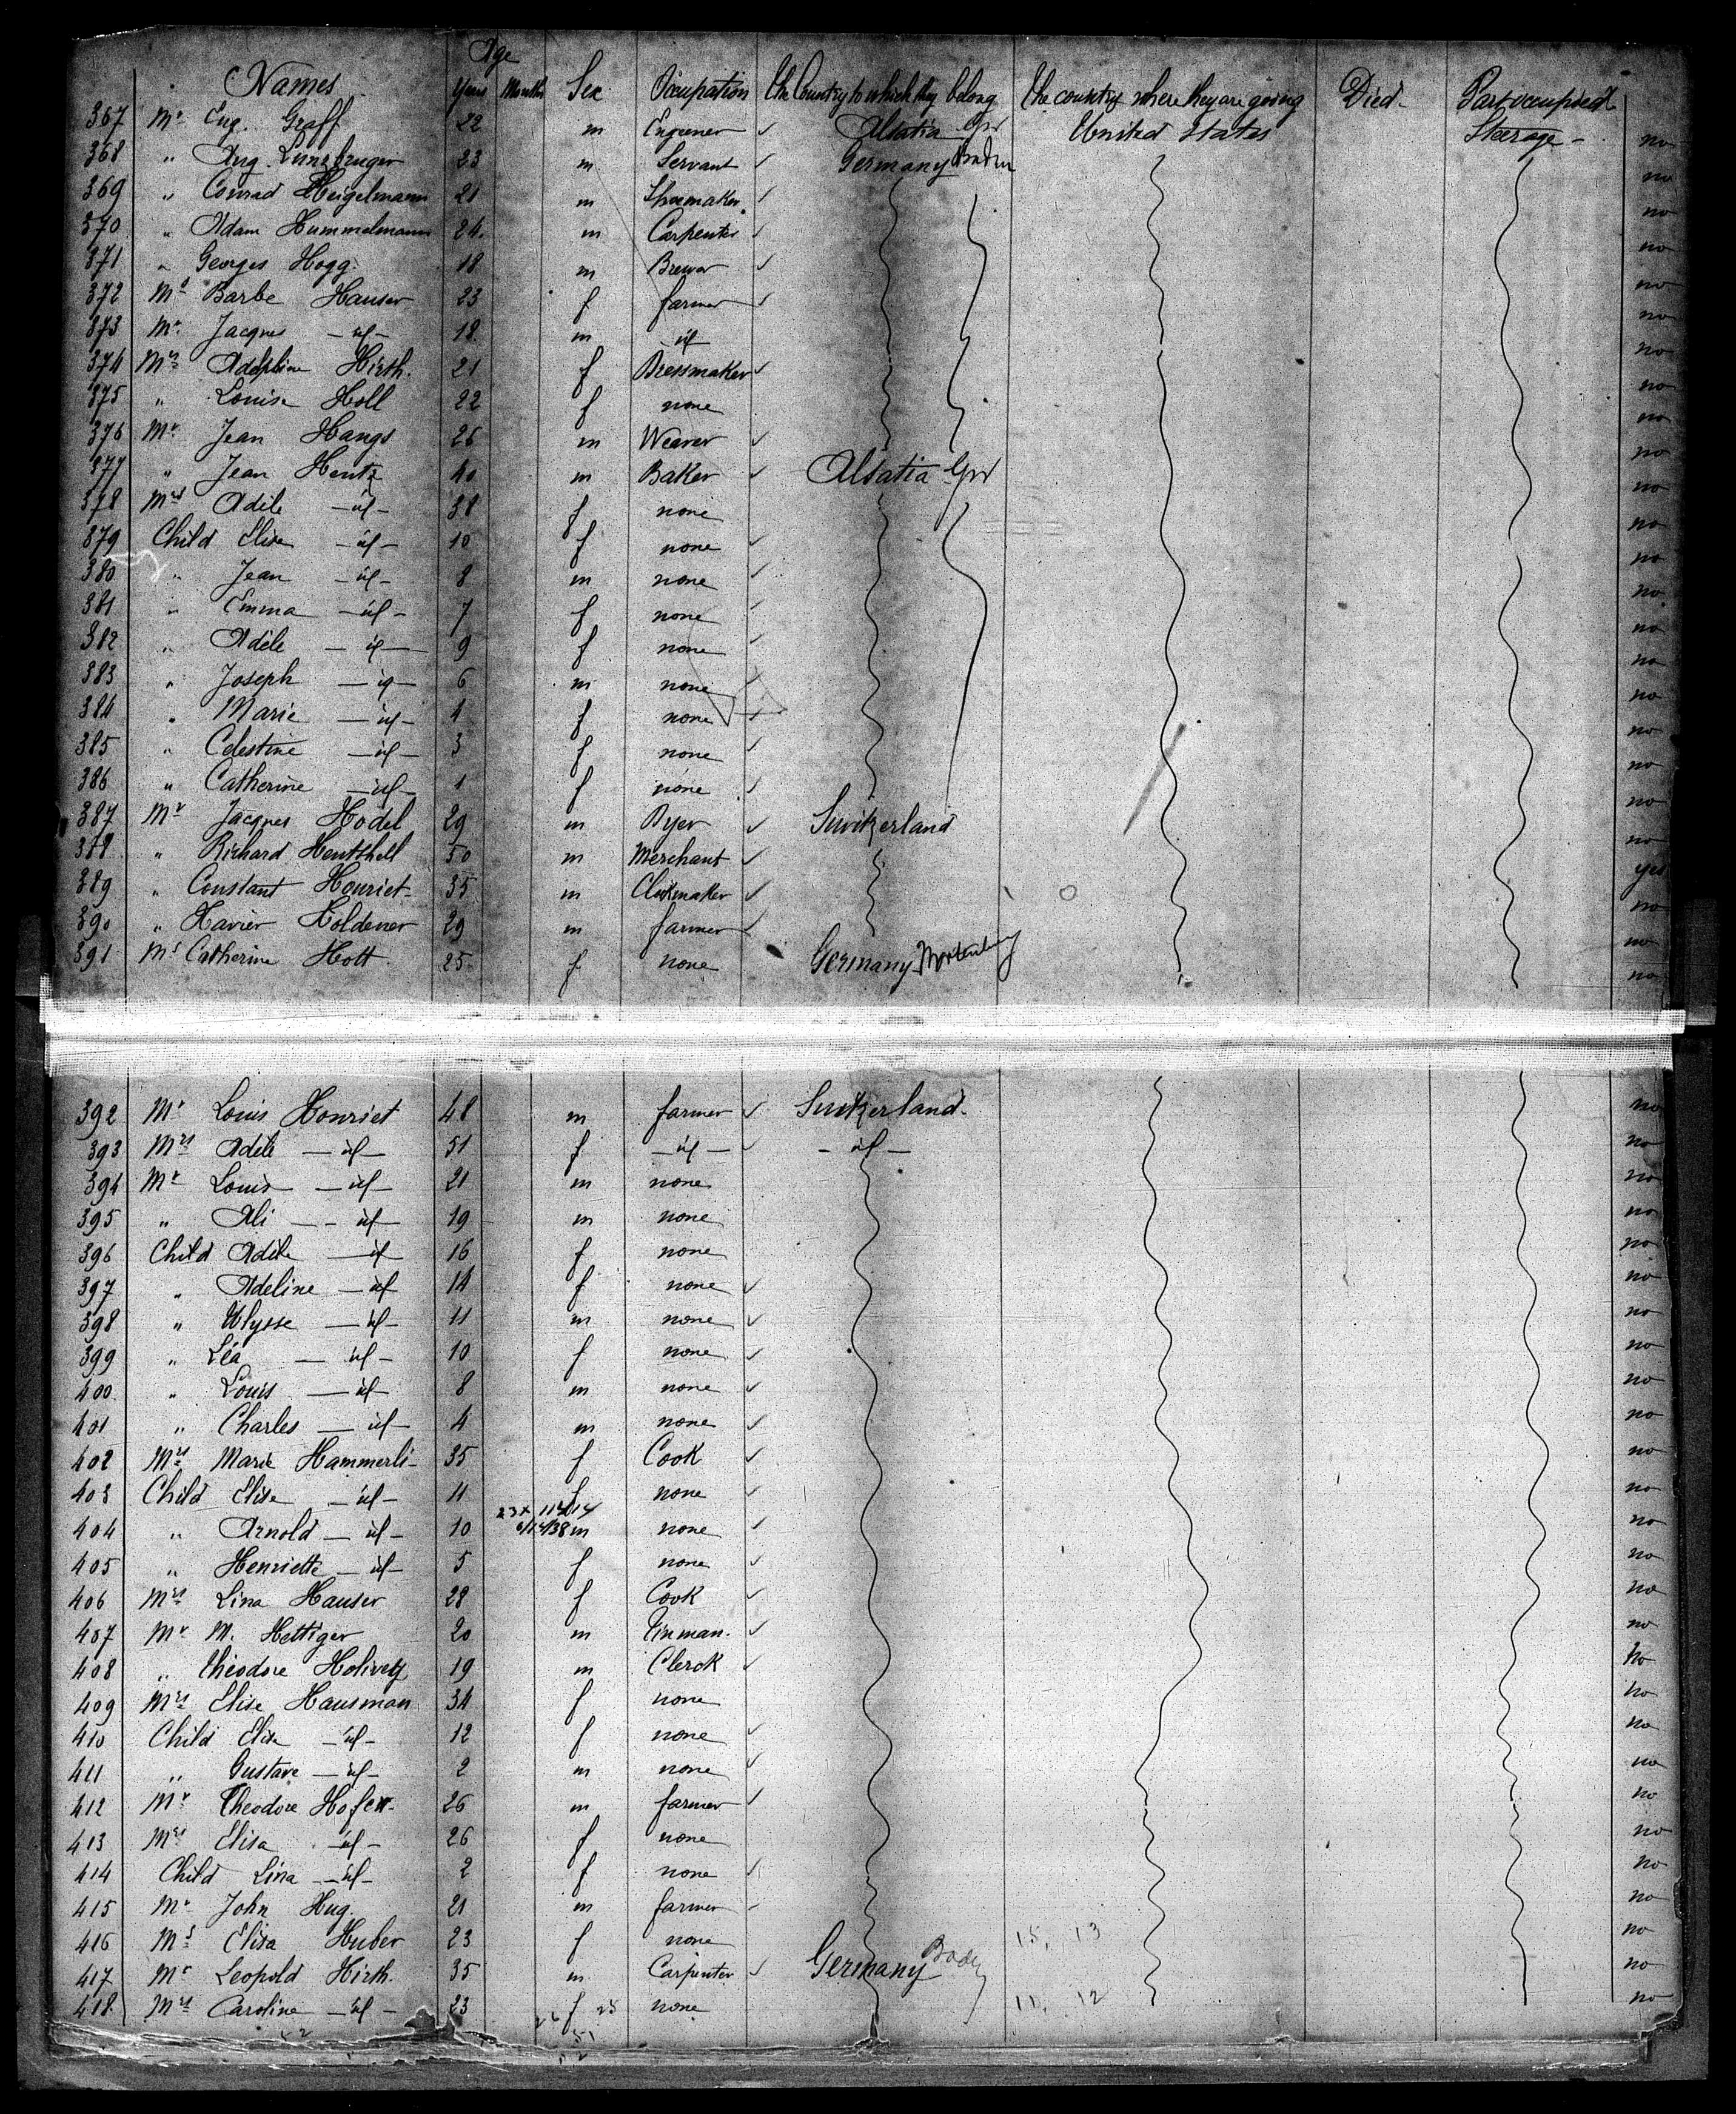 Age
Names Years Months Sex Occupation The Country to which they belong The country where they are going Died. Part occupied
367 Mr Eug. Graff 22 m Engeneer Alsatia Gr United States Steerage - no
368 " Aug. 23 m Servant Germany Baden no
369 " Conrad Heigelmann 21 m Shoemaker no
370 " Adam Hummelmann 24. m Carpenter no
371 " Georges Hogg. 18 m Brewer no
372 Ms Barbe Hauser 23 f farmer no
373 Mr Jacques - id - 18. m id no
374 Mrs Adolphine Hirth. 21 f Dressmaker no
375 " Louise Holl 22 f none no
376 Mr Jean Hangs 25 m Weaver no
377 " Jean Hentz 40 m Baker Alsatia Gr no
378 Mrs Adèle - id - 38 f none no
379 Child Elise - id - 10 f none no
380 " Jean - id - 8 m none no
381 " Emma - id - 7 f none no
382 " Adèle - id - 9 f none no
383 " Joseph - id - 6 m none no
384 " Marie - id - 4 f none no
385 " Celestine - id - 3 f none no
386 " Catherine - id - 1 f none no
387 Mr Jacques Hodel 29 m Dyer Switzerland no
388 " Richard Hentshell 50 m Merchant yes
389 " Constant Houriet 35 m Clokmaker no
390 " Xavier Holdener 29 m farmer no
391 Ms Catherine Hott 25 f none Germany no
392 Mr Louis Houriet 48 m farmer Switzerland. no
393 Mrs Adèle - id - 51 f - id - - id - no
394 Mr Louis - id - 21 m none no
395 " Ali - - id - 19 m none no
396 Child Adèle - id 16 f none no
397 " Adeline - id 14 f none no
398 " Ulysse - id - 11 m none no
399 " Léa - id - 10 f none no
400. " Louis - id - 8 m none no
401 " Charles - id - 4 m none no
402 Mrs Marie Hammerli- 35 f Cook no
403 Child Elise - id - 11 f none no
404 " Arnold - id - 10 m none no
405 " Henriette - id - 5 f none no
406 Mrs Lina Hauser 28 f Cook no
407 Mr M. Hettiger 20 m Tinman. no
408 " Théodore 19 m Clerck no
409 Mrs Elise Hausman 34 f none no
410 Child Elise - id - 12 f none no
411 " Gustave - id - 2 m none no
412 Mr Theodore Hofer- 26 m farmer no
413 Mrs Elisa - id - 26 f none no
414 Child Lina - id - 2 f none no
415 Mr John Hug. 21 m farmer no
416 Ms Elisa Huber 23 f none 15, 13 no
417 Mr Leopold Hirth. 35 m Carpenter Germany no
418. Mrs Caroline - id - 23 f 25 none 11, 12 no